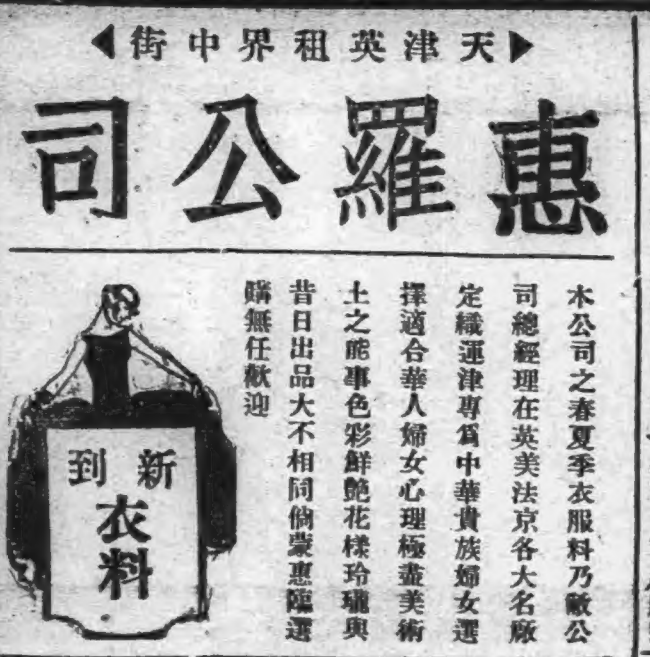 天津英租界中街
惠羅公司
本公司之春夏季衣服料乃敝公
司總經理在英美法京各大名廠
定織運津專爲中華貴族婦女選
擇適合華人婦女心理極盡美術
上之能事色彩鮮艶花樣玲瓏與
昔日出品大不相同倘蒙惠臨選
購無任歡迎
新到
衣料